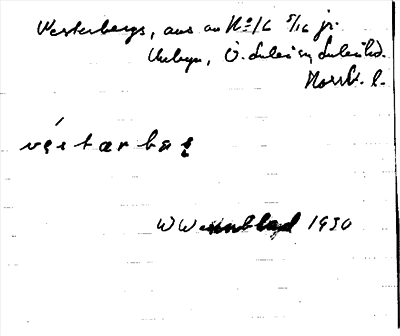 Westerbergs, aus av No 16 5/16 jr.
Unbyn, Ö. Luleå sn, Luleå tld.
Norrb. l.
véstærbæ
W Wennblad 1930